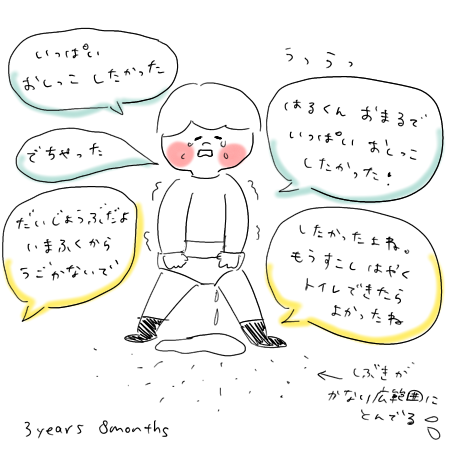 いっぱい
おしっこ したかった
でちゃった
だいじょうぶだよ
いまふくから
うごかないで
うっうっ
はるくん おまるで
いっぱい おしっこ
したかった!
したかったよね。
もうすこし はやく
トイレできたら
よかったね
← しぶきが
かなり広範囲に
とんでる
3years 8months